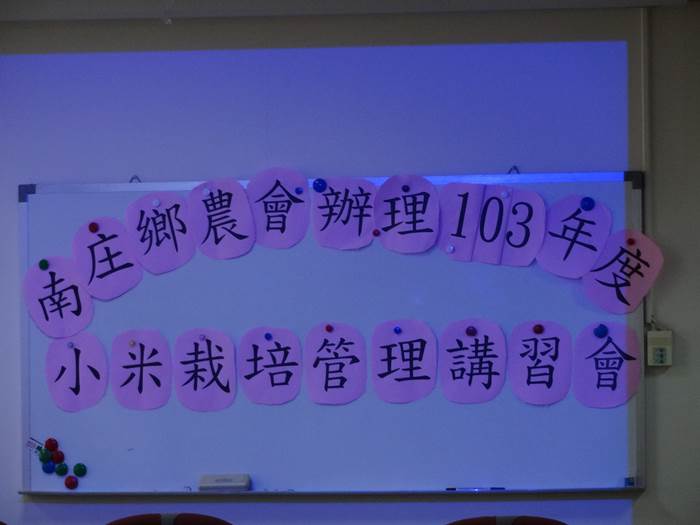 南庄鄉農會辦理103年度
小米栽培管理講習會